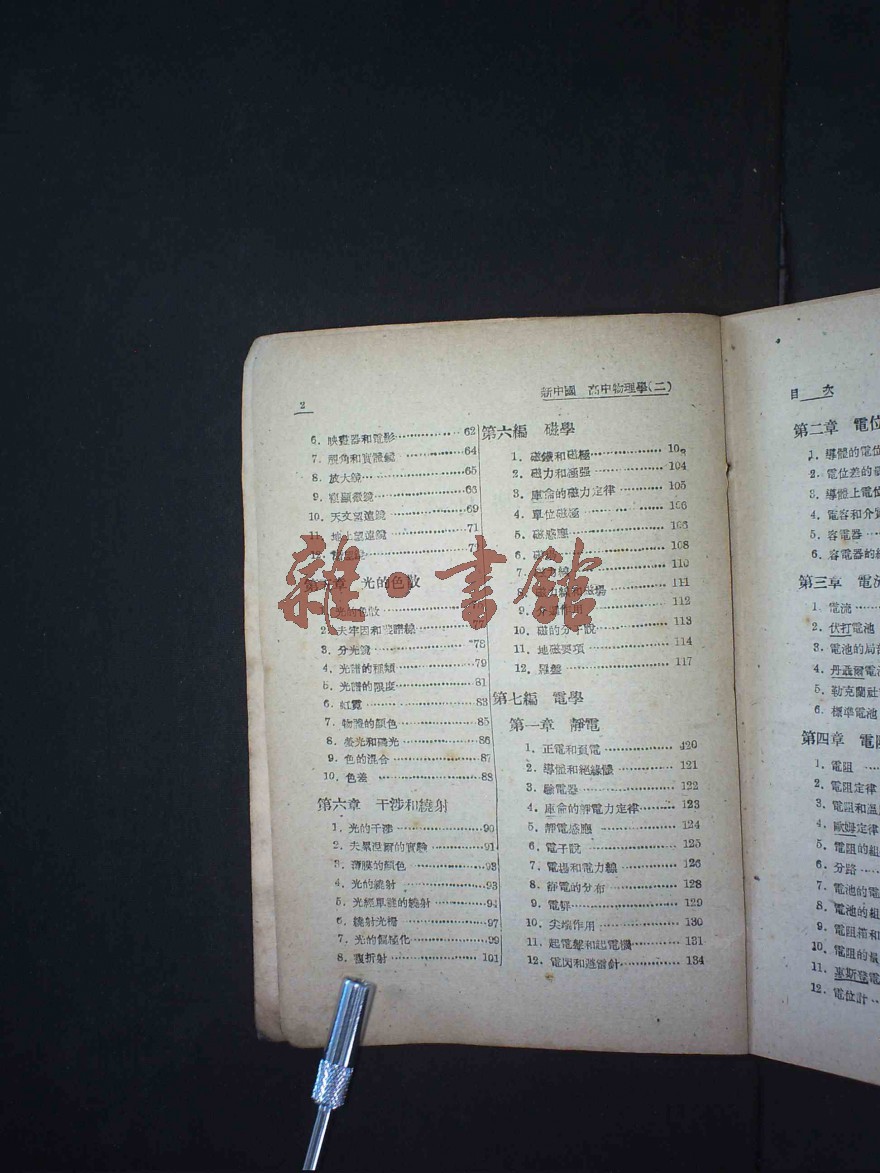 2
新中國 高中物理學(二)
6. 映畫器和電影 62
7. 視角和實體鏡 64
8. 放大鏡 65
9. 複顯微鏡 66
10. 天文望遠鏡 69
11. 地上望遠鏡 71
第五章 光的色散
1. 光的色散
2. 夫牢因和髮譜線
3. 分光鏡 78
4. 光譜的種類 79
5. 光譜的限度 81
6. 虹霓 83
7. 物體的顏色 85
8. 螢光和磷光 86
9. 色的混合 87
10. 色差 88
第六章 干涉和繞射
1. 光的干涉 90
2. 夫累涅爾的實驗 91
3. 薄膜的顏色 93
4. 光的繞射 93
5. 光經單縫的繞射 94
6. 繞射光柵 97
7. 光的偏極化 99
8. 複折射 101
第六編 磁學
1. 磁鐵和磁極
2. 磁力和極强 104
3. 庫侖的磁力定律 105
4. 單位磁極 106
5. 磁感應 106
6. 108
7. 110
8. 磁力線和磁場 111
9. 分選作用 112
10. 磁的分子說 113
11. 地磁要項 114
12. 羅盤 117
第七編 電學
第一章 靜電
1. 正電和負電 120
2. 導體和絕緣體 121
3. 驗電器 122
4. 庫侖的靜電力定律 123
5. 靜電感應 124
6. 電子說 125
7. 電場和電力線 126
8. 靜電的分布 128
9. 電屏 129
10. 尖端作用 130
11. 起電盤和起電機 131
12. 電閃和避雷針 134
目 次
第二章 電位
1. 導體的電位
2. 電位差的
3. 導體上電位
4. 電容和介
5. 容電器
6. 容電器的
第三章 電流
1. 電流
2. 伏打電池
3. 電池的局
4. 丹聶爾電
5. 勒克蘭社
6. 標準電池
第四章 電阻
1. 電阻
2. 電阻定律
3. 電阻和溫
4. 歐姆定律
5. 電阻的組
6. 分路
7. 電池的電
8. 電池的組
9. 電阻箱和
10. 電阻的量
11. 惠斯登電
12. 電位計
雜·書館